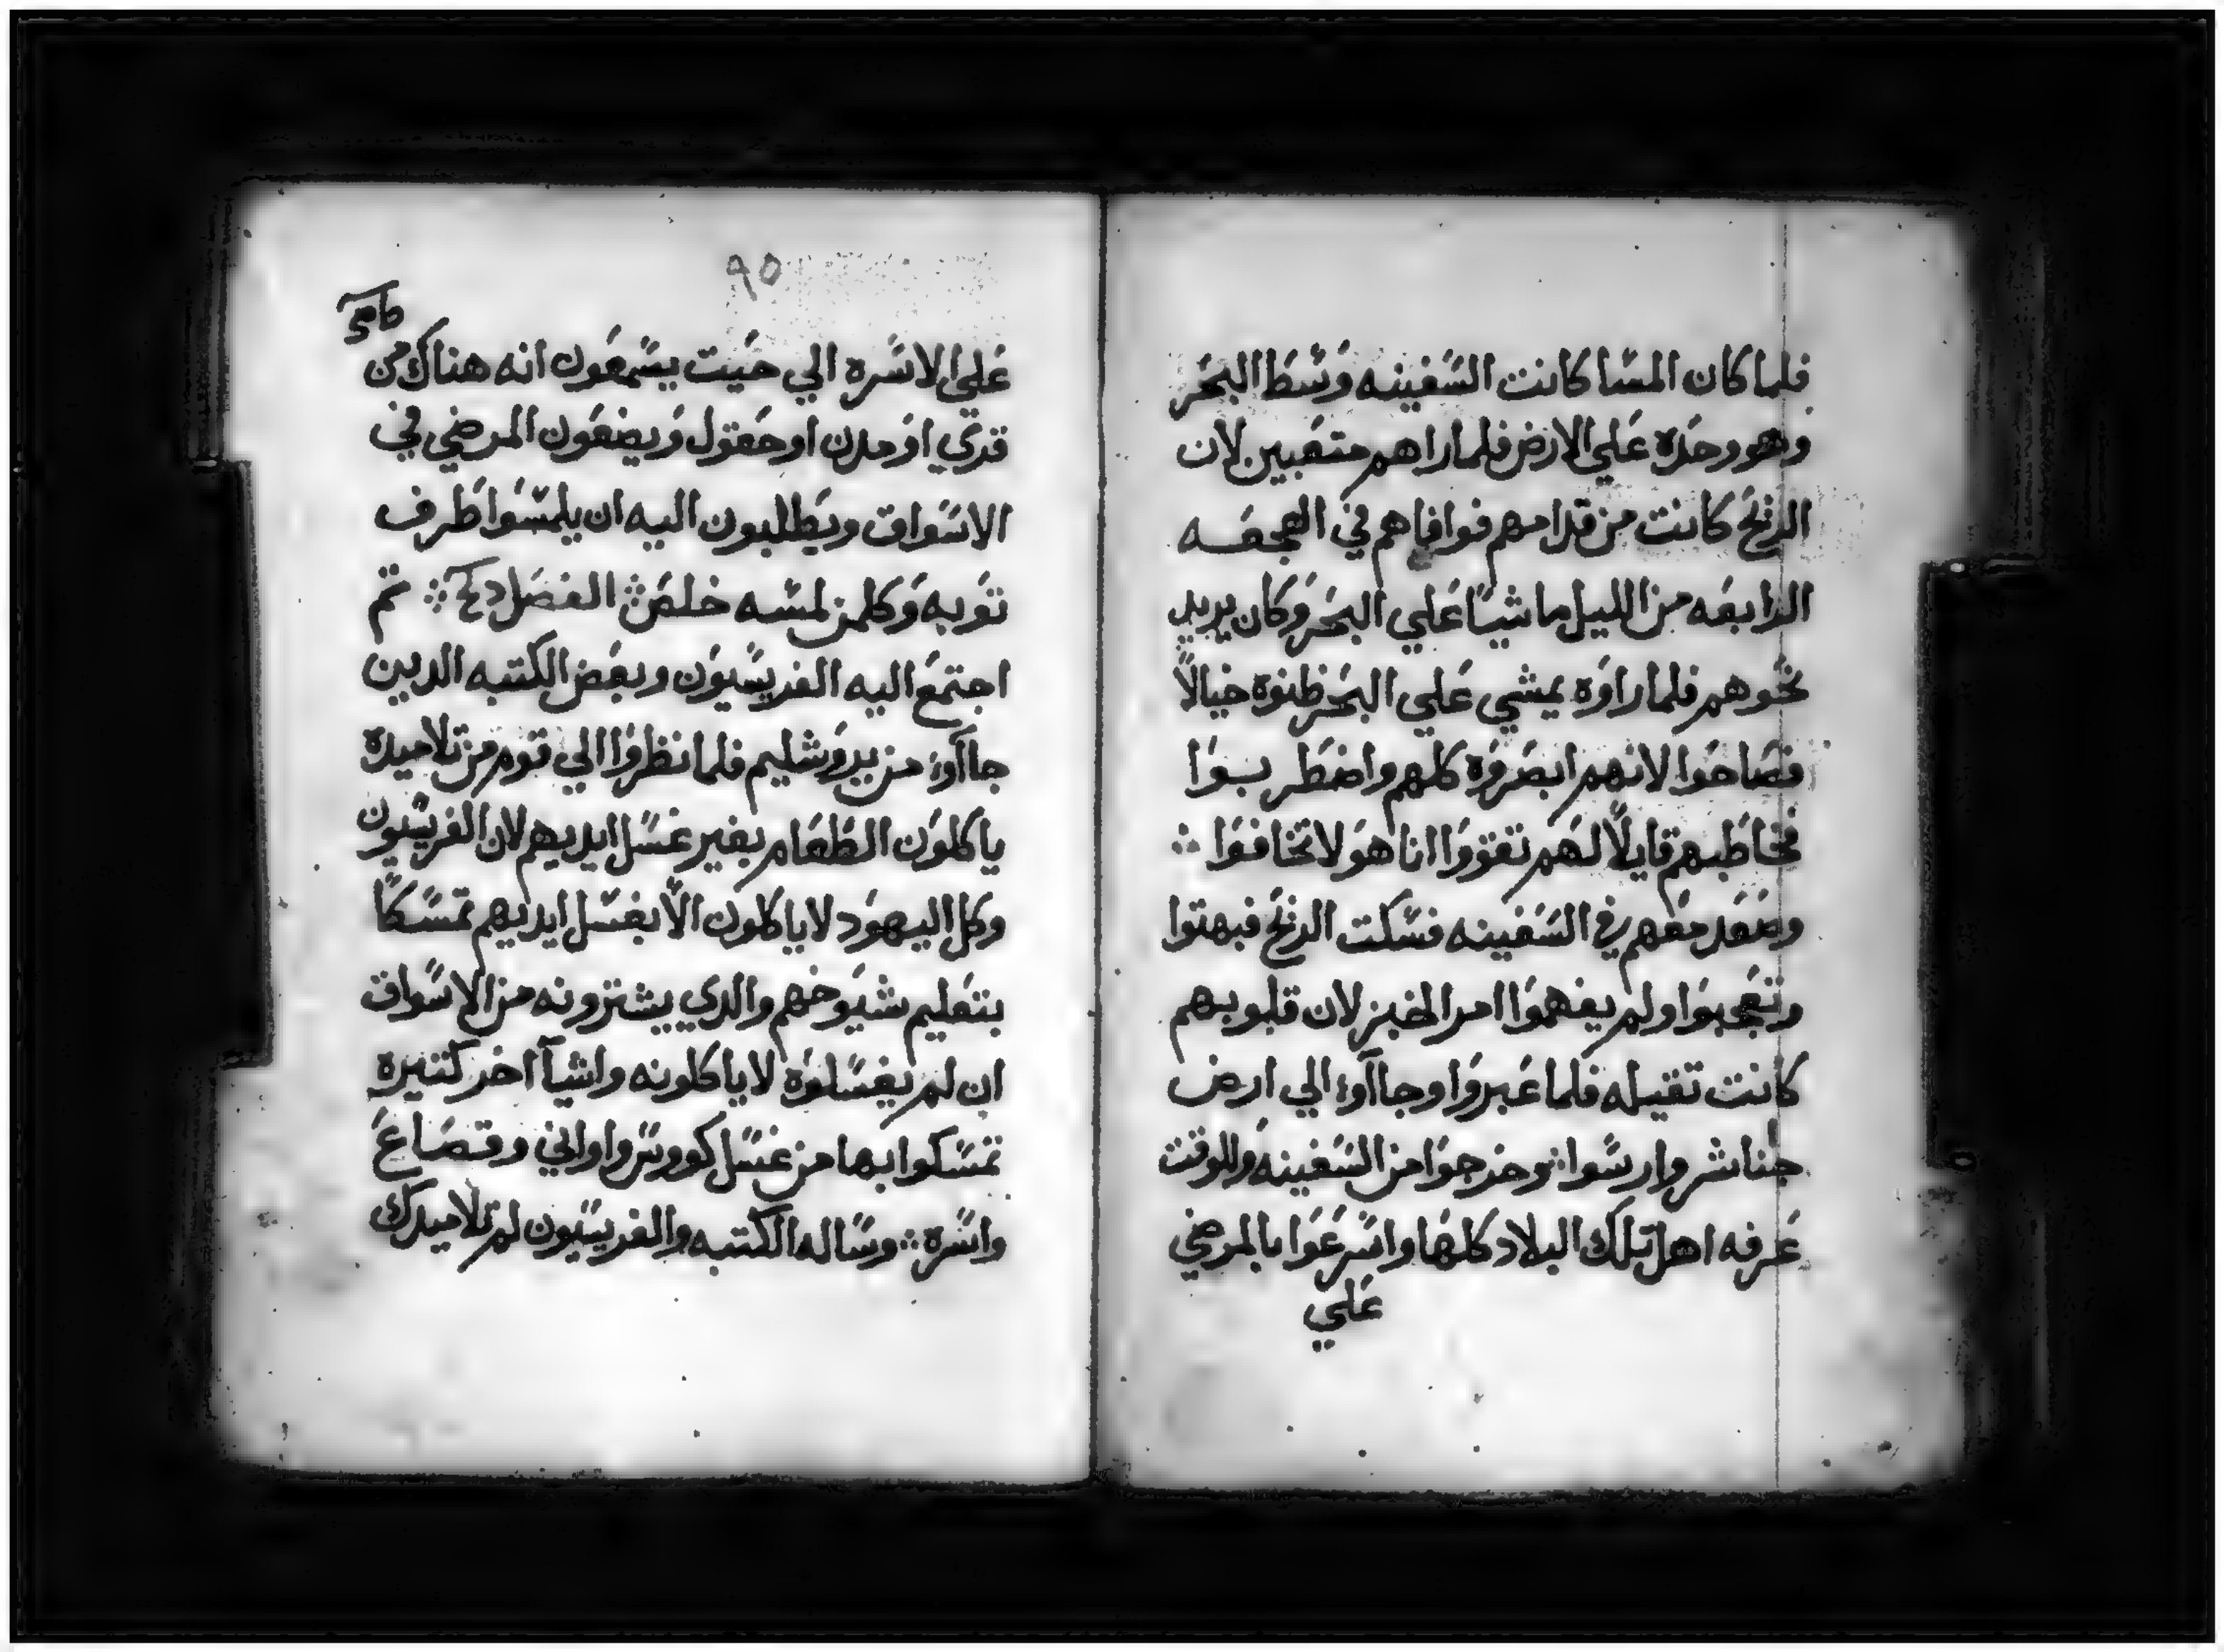 فلما كان المسا كانت السفينه وسط البحر
وهو وحده علي الارض فلما راهم متعبين لان
الريح كانت من قدامهم فوافاهم في الهجعه
الرابعه من الليل ماشيًا علي البحر وكان يريد
نحوهم فلما راوه يمشي علي البحر ظنوه خيالًا
فصاحوا لانهم ابصروه كلهم واضطربوا
فخاطبهم قايلًا لهم تقووا انا هو لا تخافوا
وصعد معهم في السفينه فسكت الريح فبهتوا
وتعجبوا ولم يفهموا امر الخبز لان قلوبهم
كانت تقيله فلما عبروا وجاآوا الي ارض
جناشر وارسوا وخرجوا من السفينه وللوقت
عرفه اهل تلك البلاد كلها واسرعوا بالمرضي
علي
٩٥
علي الاسره الي حيت يسمعون انه هناك من
قري او مدن او حقول ويضعون المرضي في
الاسواق ويطلبون اليه ان يلمسوا طرف
توبه وكلمن لمسه خلص الفصل تم
اجتمع اليه الفريسيون وبعض الكتبه الدين
جاآوا من يروشليم فلما نظروا الي قوم من تلاميده
ياكلون الطعام بغير غسل ايديهم لان الفريسيون
وكل اليهود لا ياكلون الّا بغسل ايديهم تمسكًا
بتعليم شيوخهم والدي يشترونه من الاسواق
ان لم يغسلوه لا ياكلونه واشيآ اخر كتيره
تمسكوا بها من غسل كووس واواني وقصاع
واسره وساله الكتبه والفريسيون لم تلاميدك